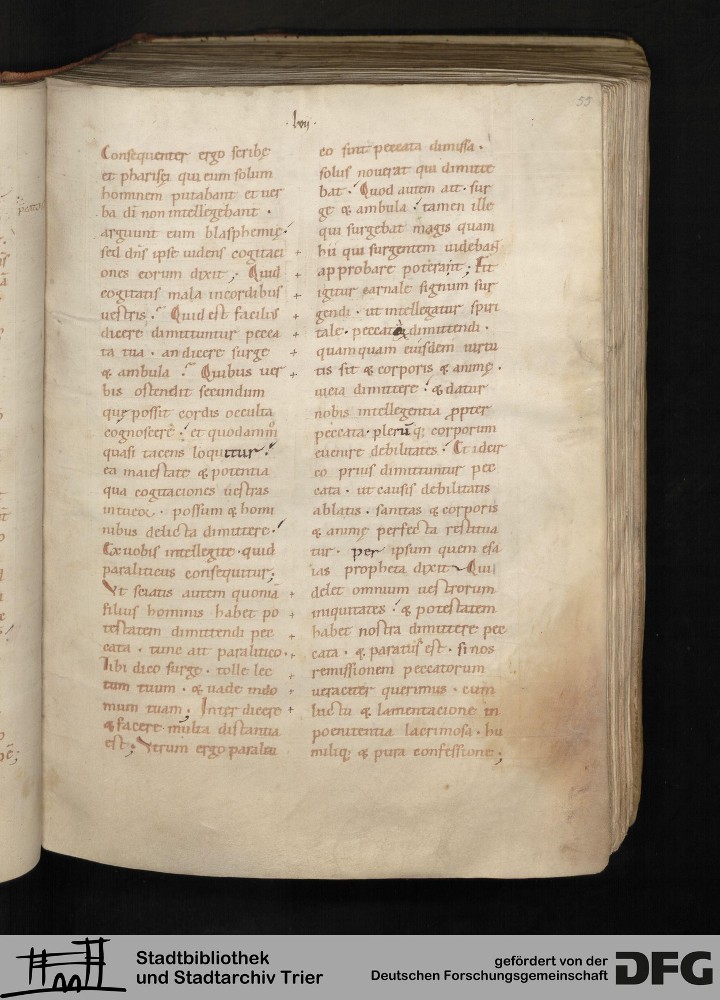 55
·lvii·
Consequenter ergo scribę
et pharisęi qui eum solum
hominem putabant et ver
ba di non intellegebant ·
arguunt eum blasphemię
sed dns ipse videns cogitaci
ones eorum dixit ; Quid
cogitatis mala in cordibus
vestris · Quid est facilis
dicere dimittuntur pecca
ta tua · an dicere surge
& ambula · Quibus ver
bis ostendit secundum
quę possit cordis occulta
cognoscere · et quodammo
quasi tacens loquitur ·
ea maiestate & potentia
qua cogitaciones vestras
intueor · possum & homi
nibus delicta dimittere ·
Ex vobis intellegite · quid
paraliticus consequitur ;
Ut sciatis autem quoniā
filius hominis habet po
testatem dimittendi pec
cata · tunc ait paralitico ·
Tibi dico surge · tolle lec
tum tuum · & vade in do
mum tuam ; Inter dicere
& facere multa distantia
est ; Utrum ergo paraliti
eo sint peccata dimissa ·
solus noverat qui dimitte
bat · Quod autem ait · sur
ge & ambula · tamen ille
qui surgebat magis quam
hii qui surgentem videbant
approbare poterant ; Fit
igitur carnale signum sur
gendi · ut intellegatur spiri
tale · peccata dimittendi ·
quamquam eiusdem virtu
tis sit & corporis & animę ·
vicia dimittere · & datur
nobis intellegentia ꝓpter
peccata · plerūq; corporum
evenire debilitates · Et idcir
co prius dimittuntur pec
cata · ut causis debilitatis
ablatis · sanitas & corporis
& animę perfecta restitua
tur · per ipsum quem esa
ias propheta dixit Qui
delet omnium vestrorum
iniquitates · & potestatem
habet nostra dimittere pec
cata · & paratus est · si nos
remissionem peccatorum
veraciter querimus · cum
luctu & lamentacione in
poenitentia lacrimosa · hu
miliq; & pura confessione ;
Stadtbibliothek
und Stadtarchiv Trier
gefördert von der
Deutschen Forschungsgemeinschaft
DFG